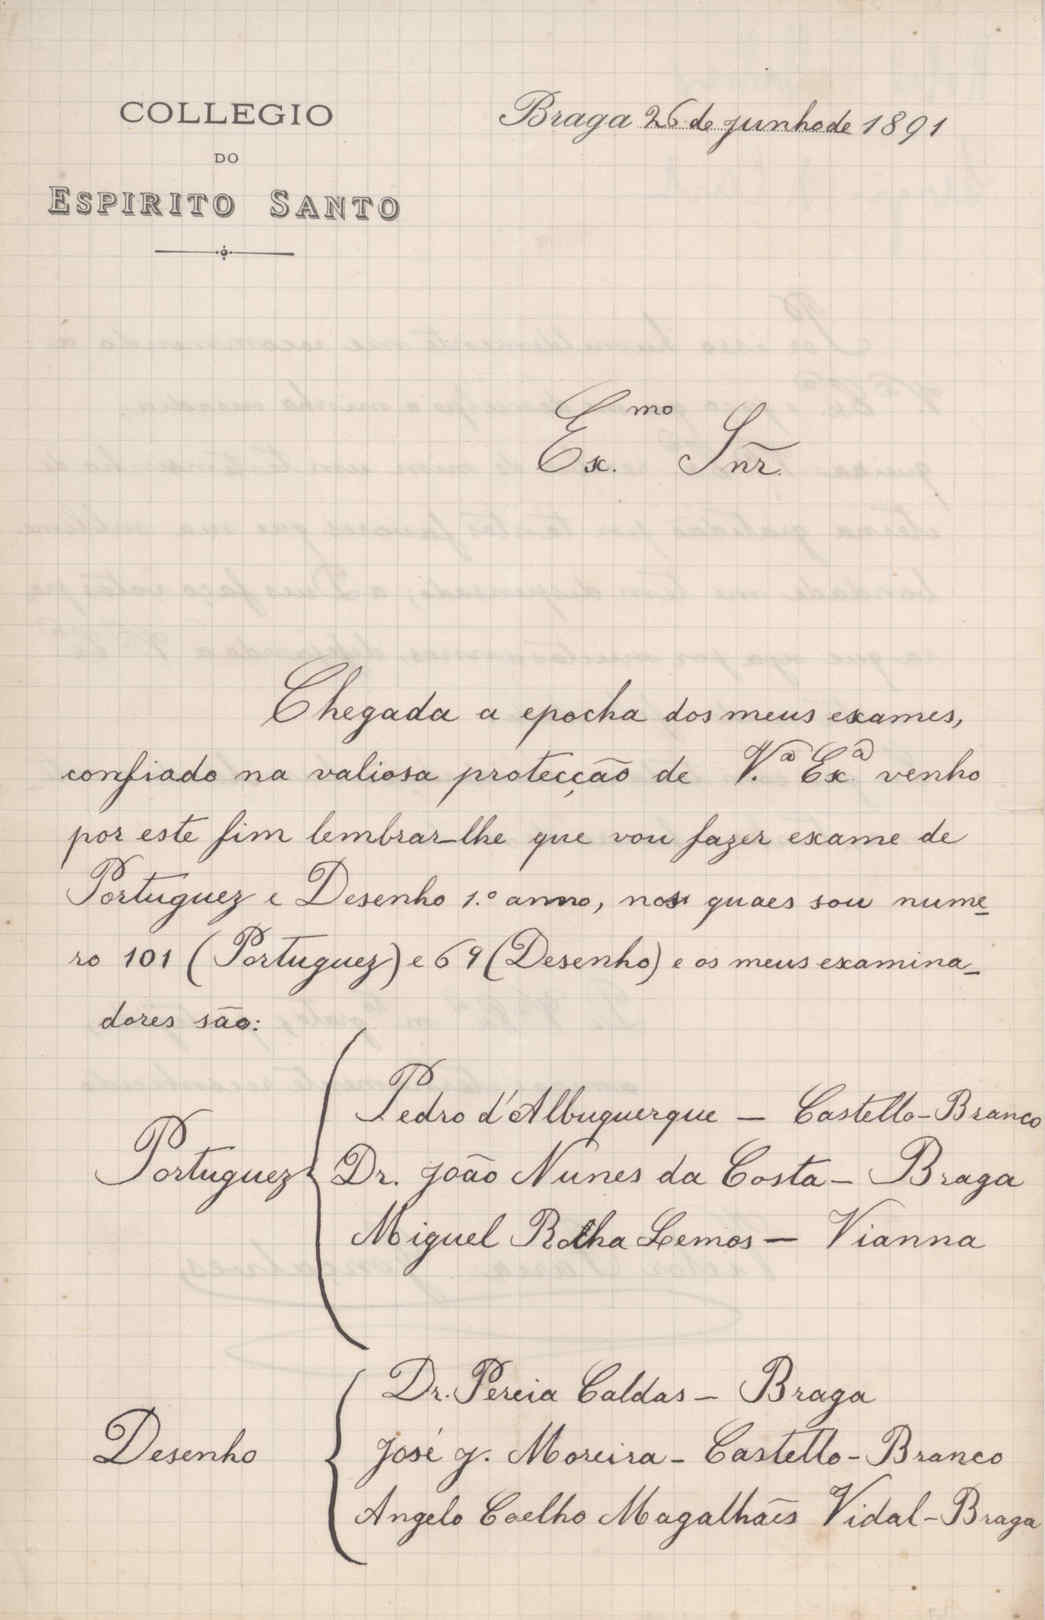 COLLEGIO
DO
ESPIRITO SANTO
Braga 26 de junho de 1891
Ex.mo Snr.
Chegada a epocha dos meus exames,
confiado na valiosa protecção de V.ª Exª venho
por este fim lembrar-lhe que vou fazer exame de
Portuguez e Desenho 1.º anno, nos quaes sou nume-
ro 101 (Portuguez) e 69 (Desenho) e os meus examina-
dores são:
Portuguez
Pedro d'Albuquerque — Castello-Branco
Dr. João Nunes da Costa — Braga
Miguel Rocha Lemos — Vianna
Desenho
Dr. Pereia Caldas — Braga
José J. Moreira — Castello-Branco
Angelo Coelho Magalhães Vidal — Braga